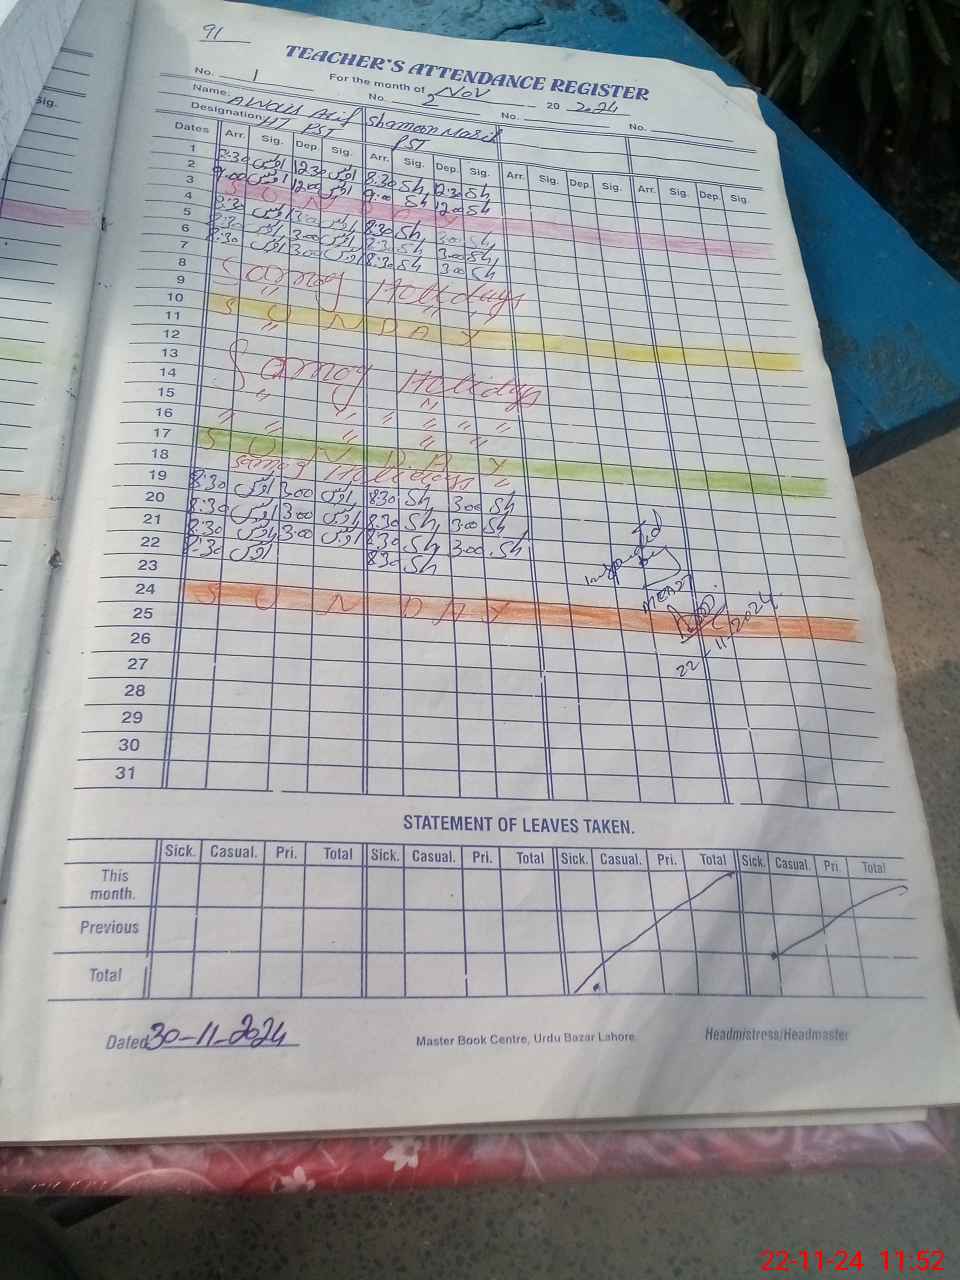 91
TEACHER'S ATTENDANCE REGISTER
For the month of Nov 20 2024
No. 1 No. 2 No. No.
Name: Awais Asif Shamoon Masih
Designation: HT PST PST
Dates Arr. Sig. Dep. Sig. Arr. Sig. Dep. Sig. Arr. Sig. Dep. Sig. Arr. Sig. Dep. Sig.
1 8:30 اویس 12:30 اویس 8:30 Sh, 12:30 Sh
2 9:00 اویس 12:00 اویس 9:00 Sh 12:00 Sh
3 S U N D A Y
4 8:30 اویس 3:00 اویس 8:30 Sh, 3:00 Sh,
5 8:30 اویس 3:00 اویس 8:30 Sh 3:00 Sh,
6 8:30 اویس 3:00 اویس 8:30 Sh 3:00 Sh
7
8 Samog Holidays
9 " " " "
10 S U N D A Y
11
12 Samog Holidays
13
14 " " "
15 " " " " " "
16 " "
17 S U N D A Y
18 Samog Holidays
19 8:30 اویس 3:00 اویس 8:30 Sh 3:00 Sh
20 8:30 اویس 3:00 اویس 8:30 Sh, 3:00 Sh
21 8:30 اویس 3:00 اویس 8:30 Sh, 3:00 Sh
22 8:30 اویس 8:30 Sh
23
24 S U N D A Y
25
26
27
28
29
30
31
22-11-2024
STATEMENT OF LEAVES TAKEN.
Sick. Casual. Pri. Total Sick. Casual. Pri. Total Sick. Casual. Pri. Total Sick. Casual. Pri. Total
This month.
Previous
Total
Dated 30-11-2024
Master Book Centre, Urdu Bazar Lahore
Headmistress/Headmaster
Sig.
22-11-24 11:52